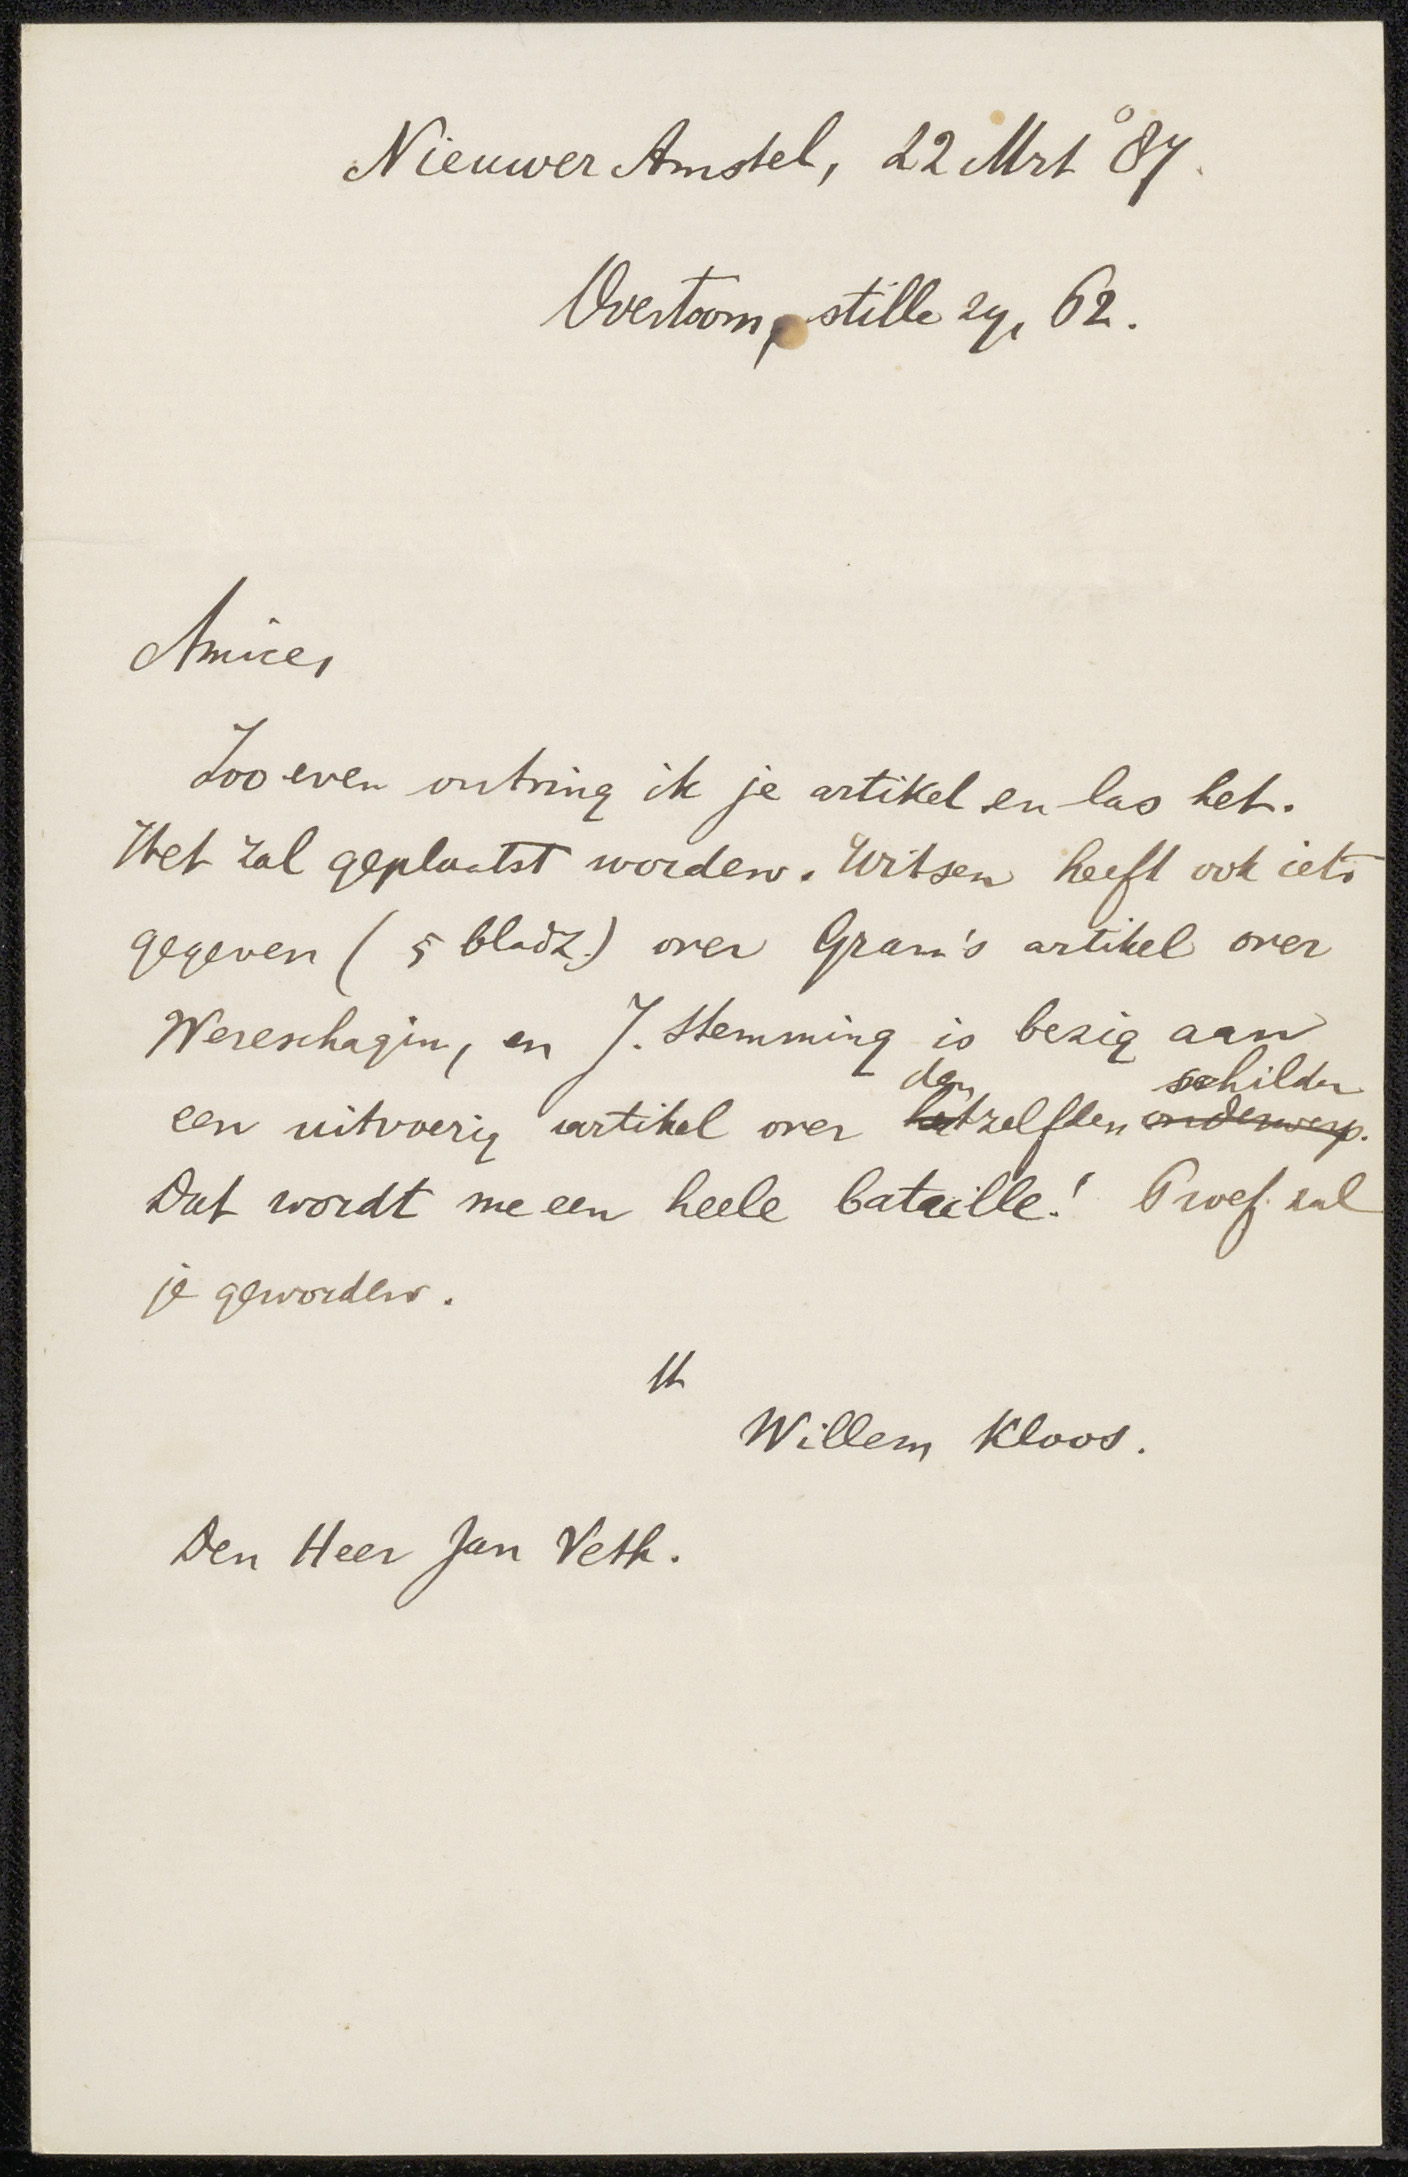 Nieuwer Amstel, 22 Mrt ° 87.
Overtoom, stille zij, 62.
Amice,
Zoo even ontving ik je artikel en las het.
Het zal geplaatst worden. Witsen heeft ook iets
gegeven (5 bladz.) over Gram's artikel over
Wereschagin, en J. Stemming is bezig aan
een uitvoerig artikel over den hetzelfden schilder onderwerp.
Dat wordt me een heele bataille! Proef zal
je geworden.
tt
Willem Kloos.
Den Heer Jan Veth.